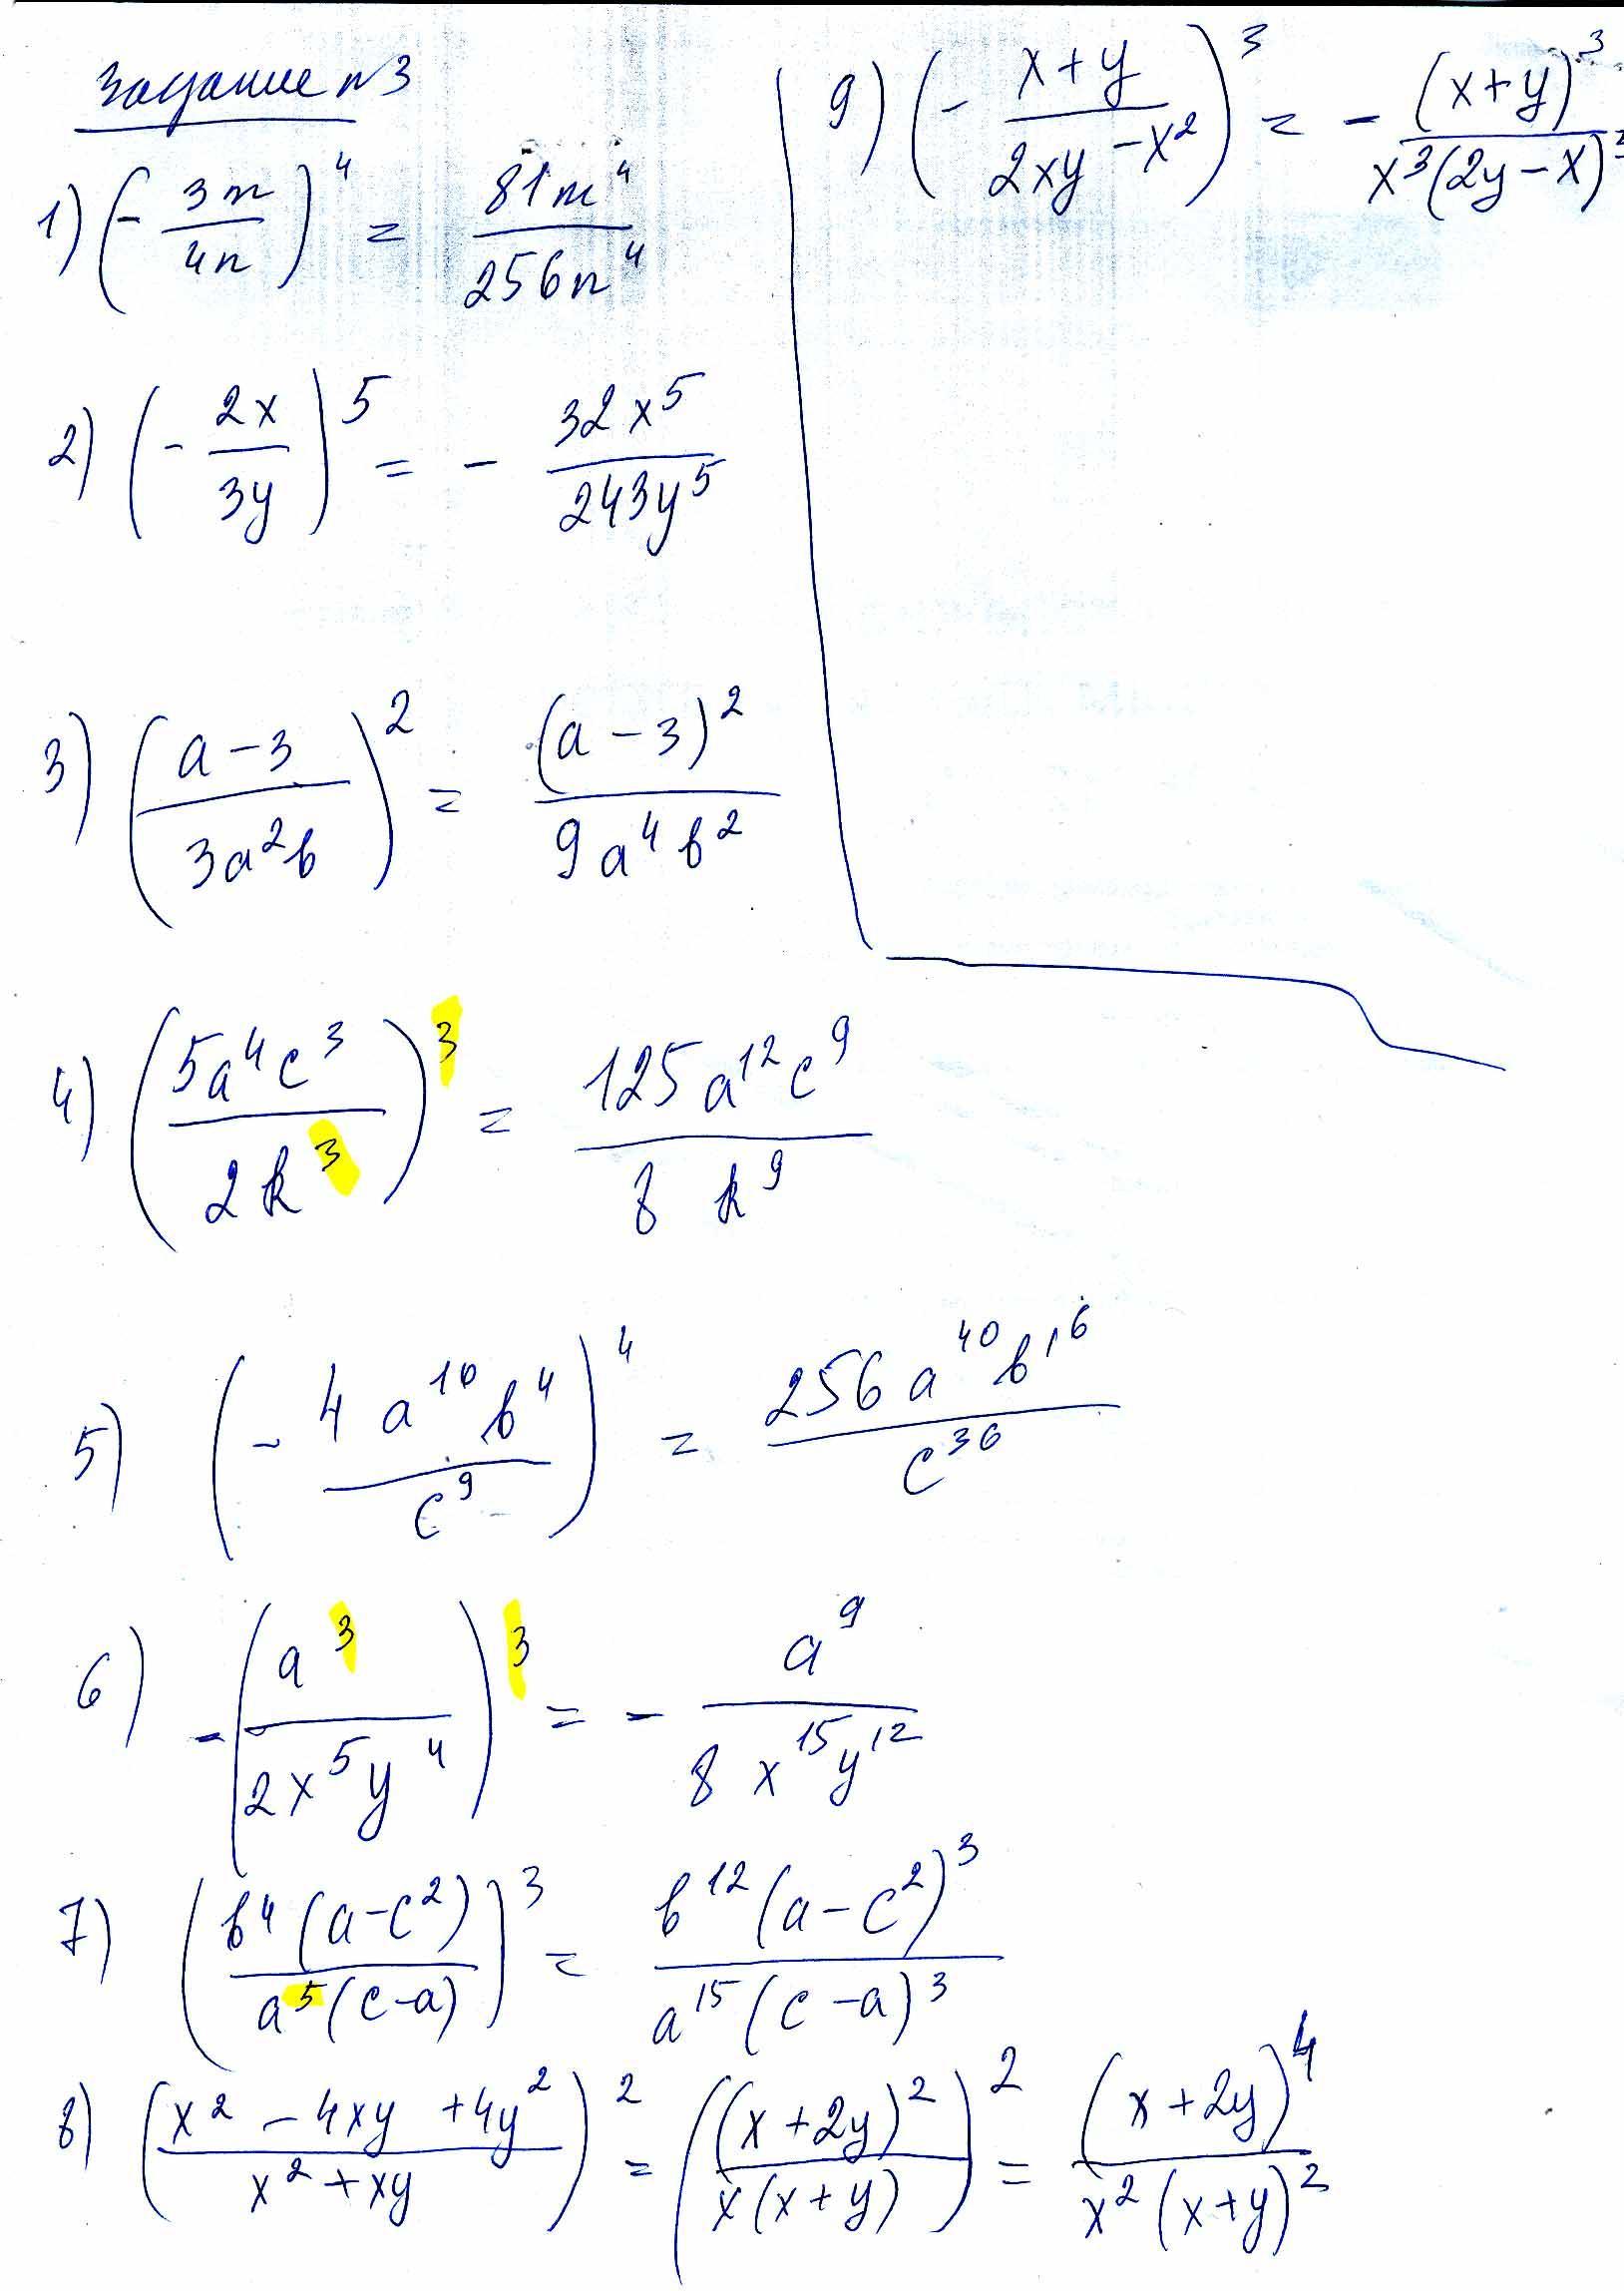 Задание №3
1) (- 3m/4n)^4 = 81m^4/256n^4
2) (- 2x/3y)^5 = - 32x^5/243y^5
3) ((a-3)/3a^2b)^2 = (a-3)^2/9a^4b^2
4) (5a^4c^3/2k^3)^3 = 125a^12c^9/8k^9
5) (- 4a^10b^4/c^9)^4 = 256a^40b^16/c^36
6) -(a^3/2x^5y^4)^3 = - a^9/8x^15y^12
7) (b^4(a-c^2)/a^5(c-a))^3 = b^12(a-c^2)^3/a^15(c-a)^3
8) ((x^2-4xy+4y^2)/(x^2+xy))^2 = ((x+2y)^2/x(x+y))^2 = (x+2y)^4/x^2(x+y)^2
9) (- (x+y)/(2xy-x^2))^3 = - (x+y)^3/x^3(2y-x)^3